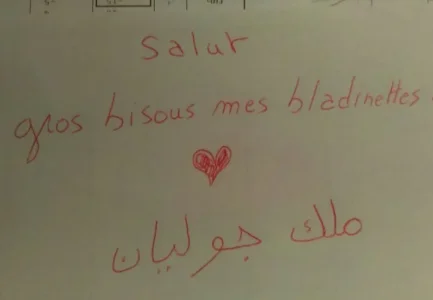 Salut
gros bisous mes bladinettes
ملك جوليان